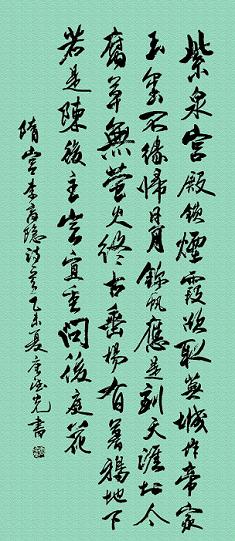 紫泉宮殿鎖煙霞欲取蕪城作帝家
玉璽不緣歸日角錦帆應是到天涯於今
腐草無螢火終古垂楊有暮鴉地下
若逢陳後主豈宜重問後庭花
隋宮李商隱詩乙未夏書